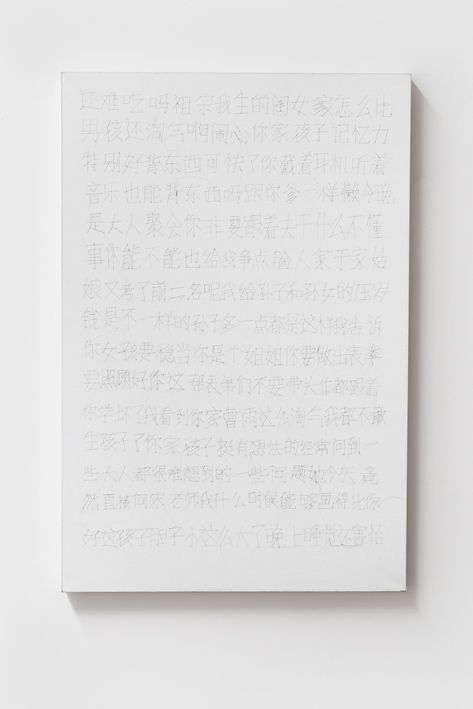 还难吃吗祖宗我生的闺女家怎么比
男孩还淘气啊闹心你家孩子记忆力
特别好背东西可快了你戴着耳机听着
音乐也能背东西吗跟你爹一样懒今晚
是大人聚会你非要跟着去干什么不懂
事你能不能也给我争点脸人家于家姑
娘又考了前二名呢我给孙子和孙女的压岁
钱是不一样的孙子多一点都是这样我告诉
你女孩要稳当你是个姐姐你要做出表率
要照顾好你这帮表弟们不要带头作都跟着
你学坏了我看到你家曹雨这么淘气我都不敢
生孩子了你家孩子挺有想法的经常问到一
些大人都很难想到的一些问题她今天竟
然直接问宋老师我什么时候能够画得比你
好这孩子胆子小这么大了晚上睡觉还害怕